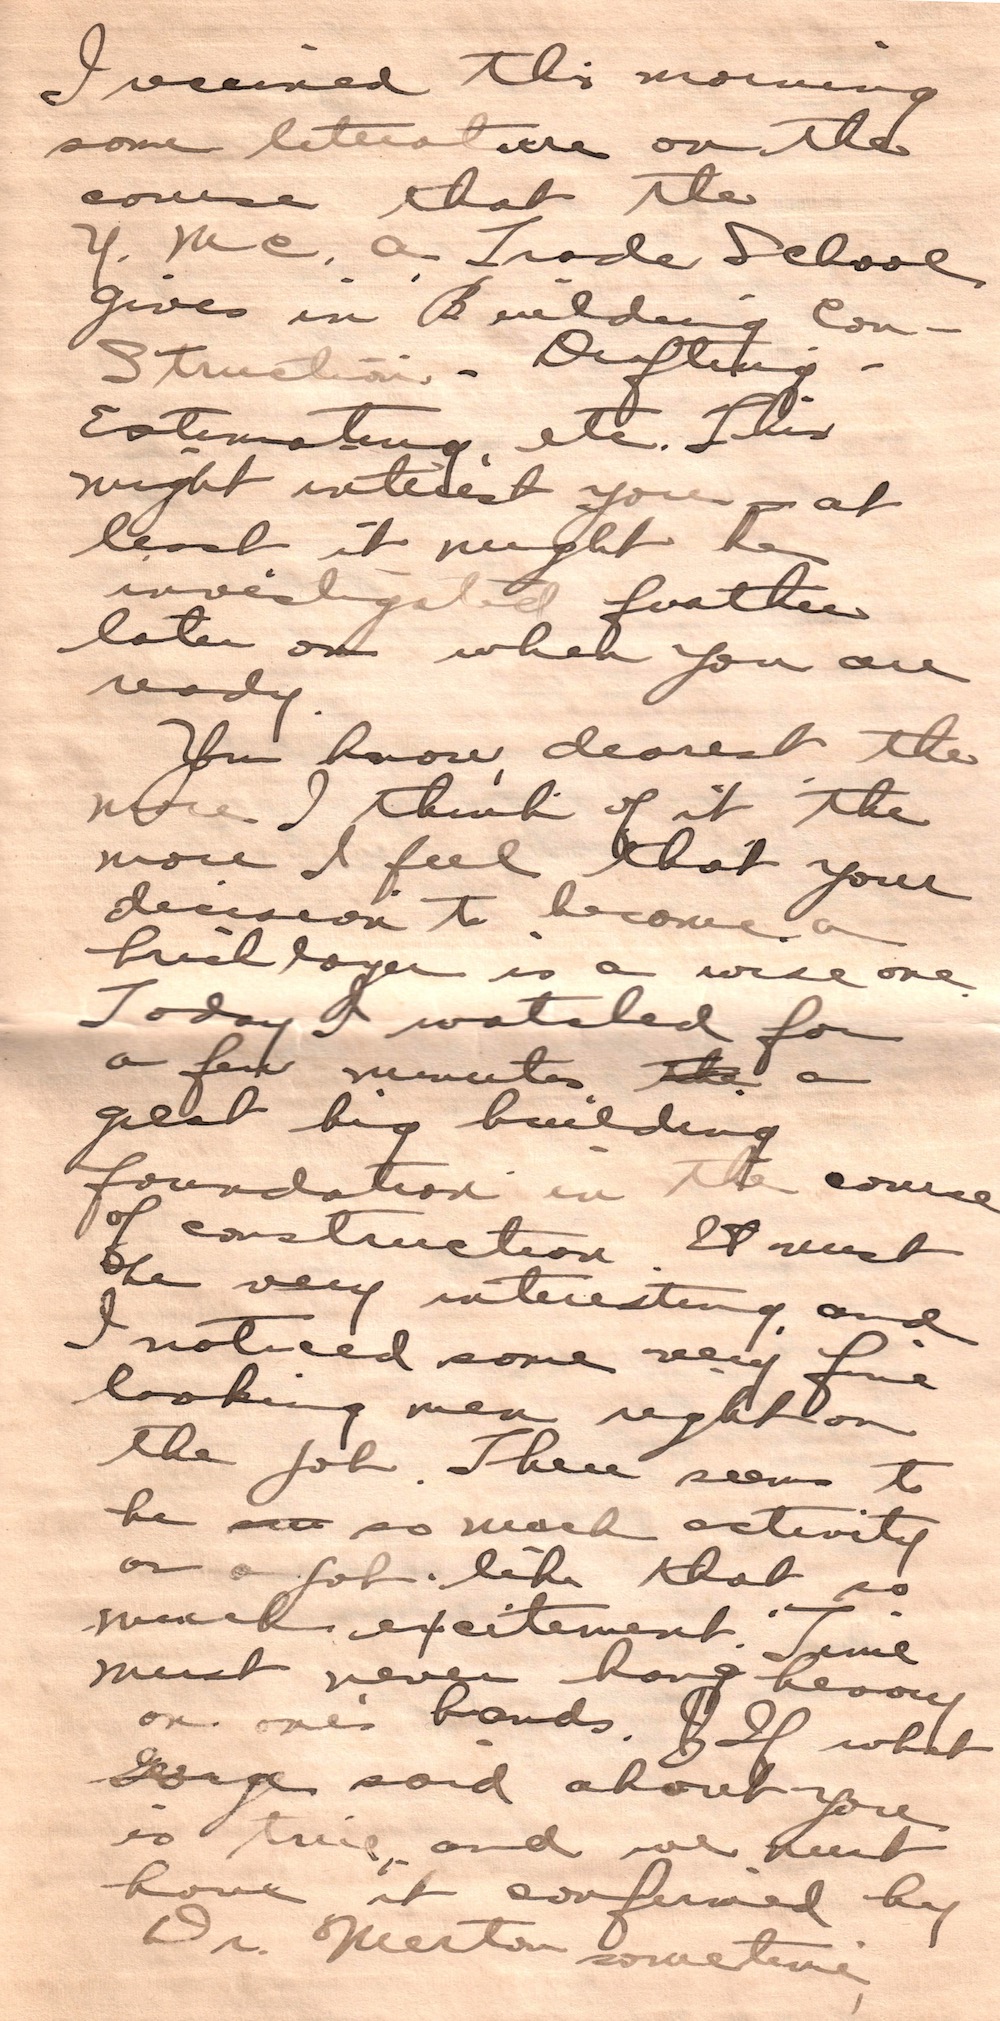 I received this morning
some literature on the
course that the
Y. M. C. A. Trade School
gives in Building Con-
struction - Drafting -
Estimating, etc. This
might interest you - at
least it might be
investigated further
later on when you are
ready.
You know, dearest the
more I think of it the
more I feel that your
decision to become a
bricklayer is a wise one.
Today I watched for
a few minutes the a
great big building
foundation in the course
of construction. It must
be very interesting and
I noticed some very fine
looking men right on
the job. There seems to
be so much activity
on a job like that so
much excitement. Time
must never hang heavy
on one's hands. If what
George said about you
is true, and we must
have it confirmed by
Dr. Merton sometime,